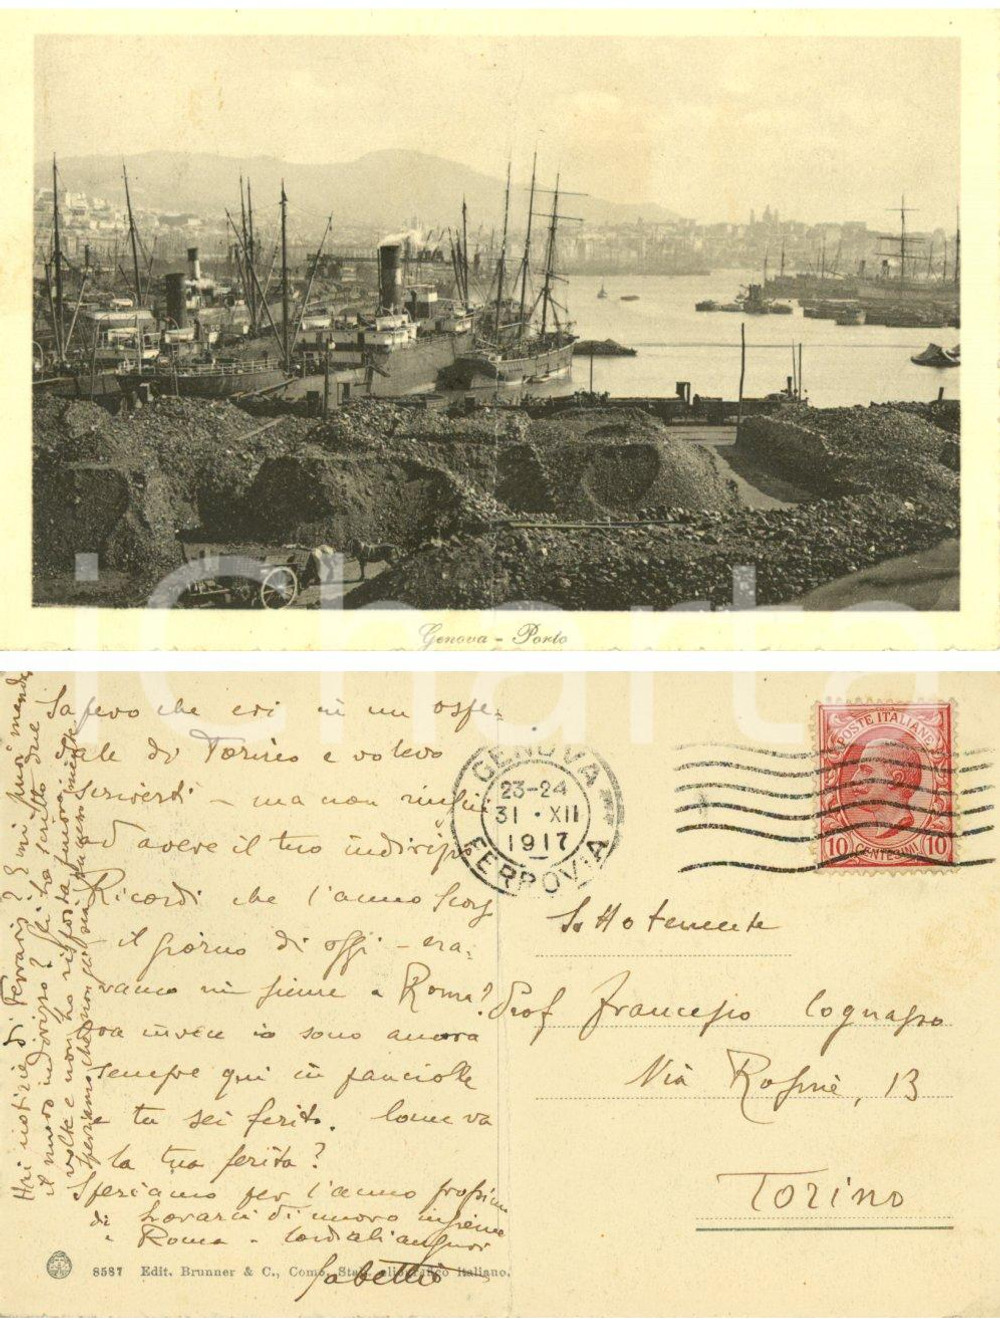 Genova - Porto
iCharta
Sapevo che eri in un ospe-
dale di Torino e volevo
scriverti - ma non riuscii
ad avere il tuo indirizzo
Ricordi che l'anno scorso
il giorno di oggi - era-
vamo insieme a Roma?
Ora invece io sono ancora
sempre qui in panciolle
e tu sei ferito. Come va
la tua ferita?
Speriamo per l'anno prossimo
di trovarci di nuovo insieme
a Roma - Cordiali auguri
Hai notizie di Ferraris? E mi puoi mandare
il nuovo indirizzo? gli ho scritto due
volte e non ho risposta
speriamo che non gli sia
GENOVA
23-24
31·XII
1917
FERROVIA
POSTE ITALIANE
10 10
CENTESIMI
Sottotenente
Prof Francesco Cognasso
Via Rosine, 13
TORINO
8587 Edit. Brunner & C., Como. Stab. eliografico italiano.